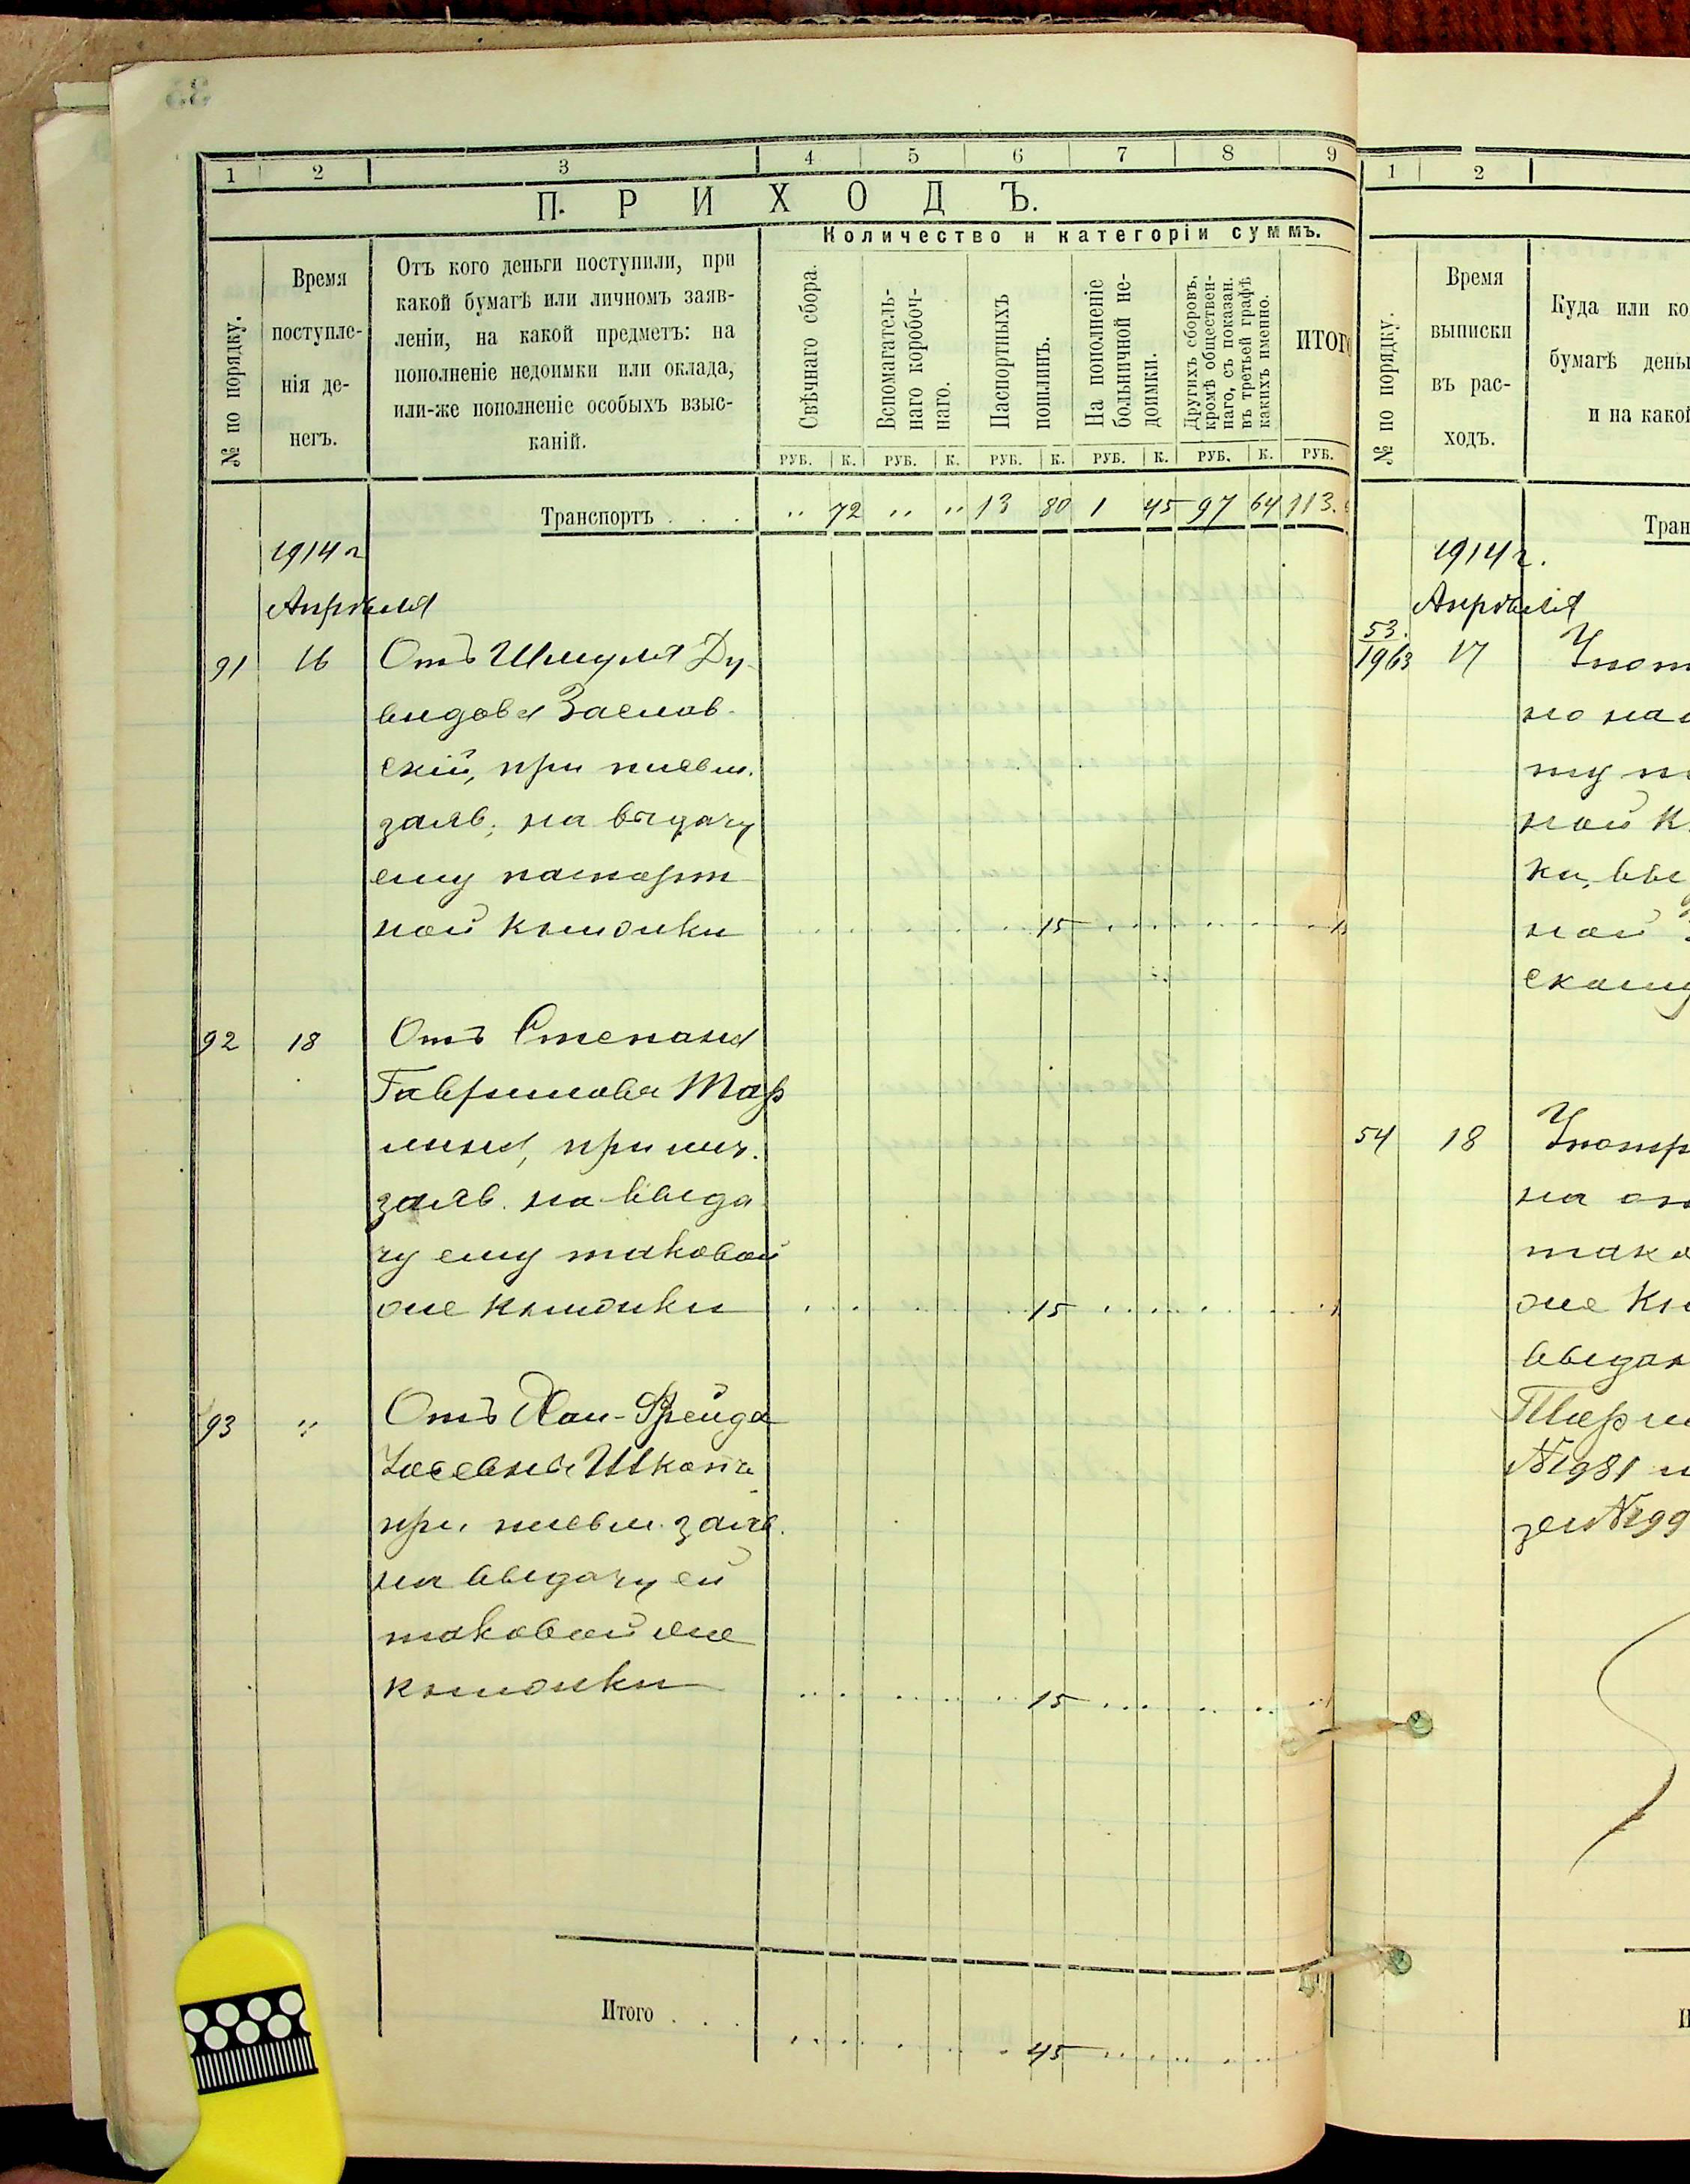 1 2 3 4 5 6 7 8 9
ПРИХОДЪ.
Количество и категоріи суммъ.
№ по порядку.
Время
поступле-
нія де-
негъ.
Отъ кого деньги поступили, при
какой бумагѣ или личномъ заяв-
леніи, на какой предметъ: на
пополненіе недоимки или оклада,
или-же пополненіе особыхъ взыс-
каній.
Свѣчнаго сбора.
Вспомагатель-
наго коробоч-
наго.
Паспортныхъ
пошлинъ.
На пополненіе
больничной не-
доимки.
Другихъ сборовъ,
кромѣ обществен-
наго, съ показан.
въ третьей графѣ
какихъ именно.
ИТОГО
РУБ. К. РУБ. К. РУБ. К. РУБ. К. РУБ. К. РУБ.
Транспортъ . . . " 72 " " 13 80 1 45 97 64 113.
1914 г
Апрѣля
91 16 Отъ Шмуля Ду-
видова Заслав-
скій, при письм.
заяв. на выдачу
ему паспорт
ной книжки 15
92 18 Отъ Степана
Гаврилова
при лич.
заяв. на выда
чу ему таковой
же книжки 15
93 " Отъ Хаи-Фрейда
Шкопа
при письм. заяв.
на выдачу ей
таковой же
книжки 15
Итого . . . 45
1 2
№ по порядку.
Время
выписки
въ рас-
ходъ.
Куда или ко
бумагѣ день
и на какой
Тран
1914 г.
Апрѣля
53.
1963 17
но на
ной к
ной
скому
54 18
на
тако
же кн
выдан
№ 981 и
№ 99